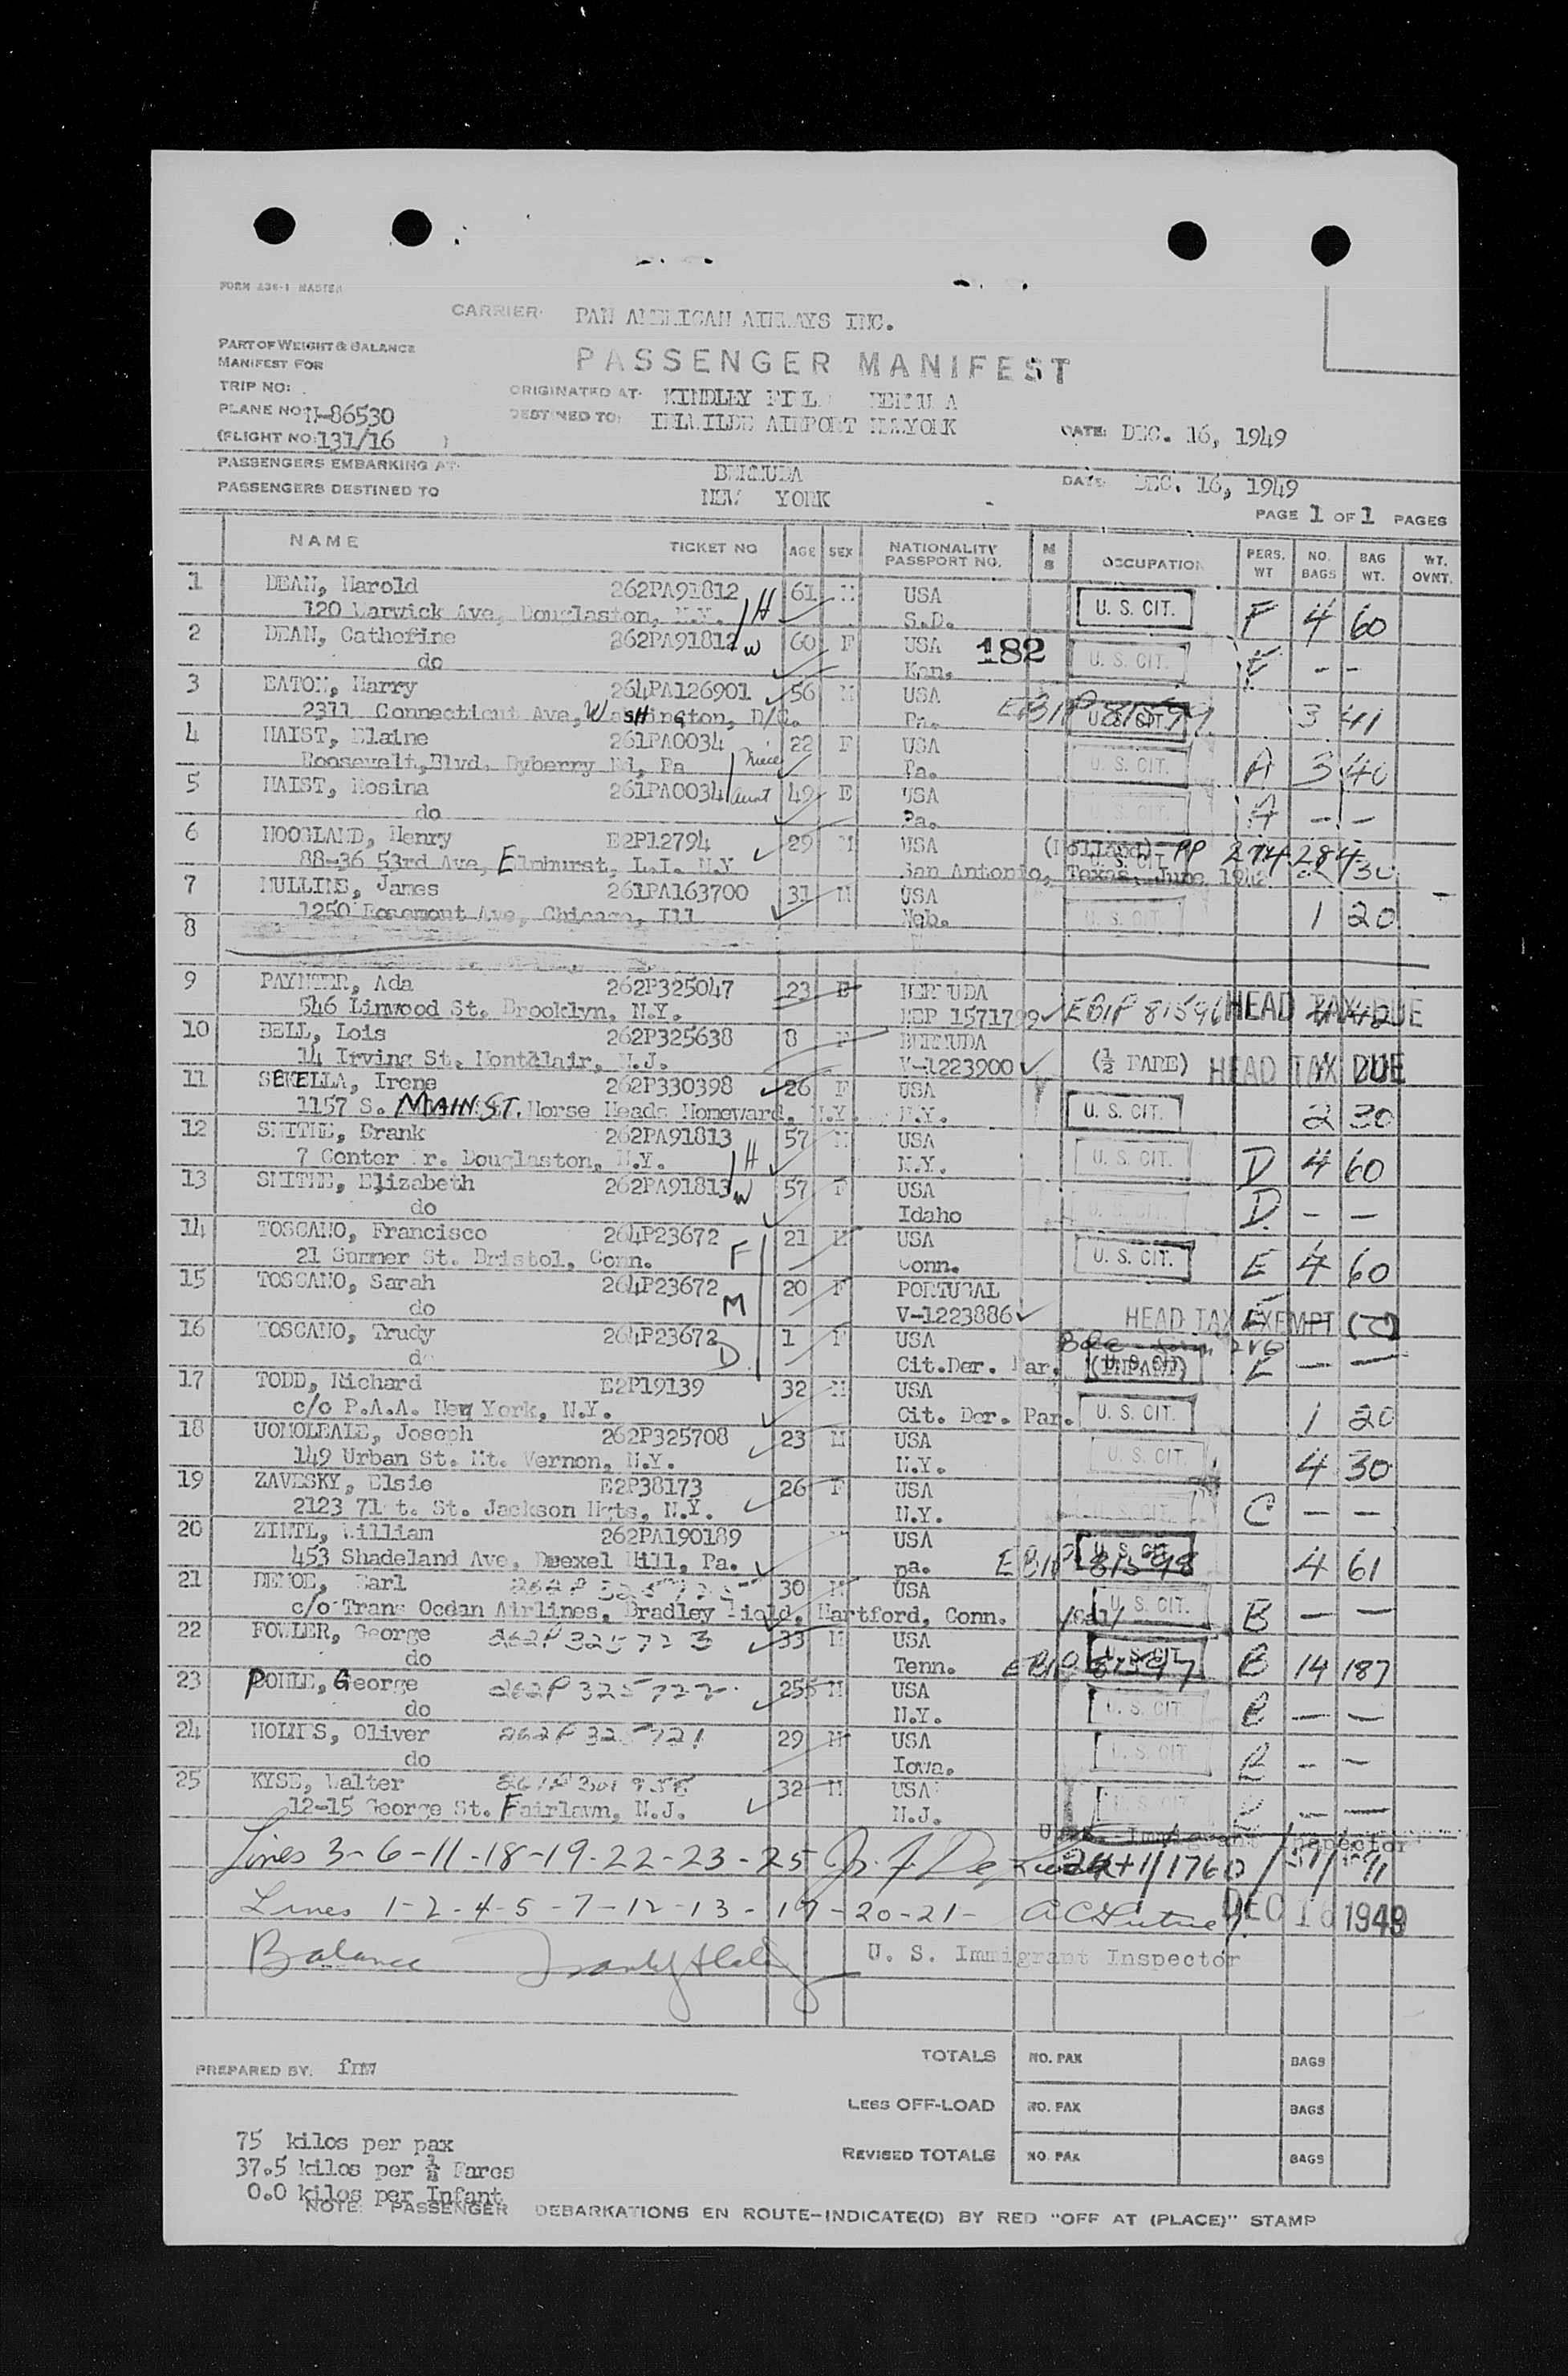 FORM 236-1 MASTER
CARRIER: PAN AMERICAN AIRWAYS INC.
PART OF WEIGHT & BALANCE
MANIFEST FOR
PASSENGER MANIFEST
TRIP NO:
ORIGINATED AT: KINDLEY
PLANE NO: N-86530
DESTINED TO: IDLWILDE AIRPORT NEWYORK
DATE: DEC. 16, 1949
(FLIGHT NO: 131/16 )
PASSENGERS EMBARKING AT: BERMUDA
DATE DEC. 16, 1949
PASSENGERS DESTINED TO NEW YORK
PAGE 1 OF 1 PAGES
NAME TICKET NO AGE SEX NATIONALITY PASSPORT NO. M S OCCUPATION PERS. WT NO. BAGS BAG WT. WT. OVNT.
1 DEAN, Harold 262PA91812 61 M USA U. S. CIT. F 4 60
120 Warwick Ave, Douglaston, N.Y. H S.D.
2 DEAN, Catherine 262PA91812 W 60 F USA 182 U. S. CIT. F - -
do Kan.
3 EATON, Harry 264PA126901 56 M USA U. S. CIT. 3 41
2311 Connecticut Ave, Washington, D/C. Pa.
4 HAIST, Elaine 261PA0034 22 F USA U. S. CIT. A 3 40
Roosevelt,Blvd. Byberry Rd, Pa Niece Pa.
5 HAIST, Rosina 261PA0034 Aunt 49 F USA A - -
do Pa.
6 HOOGLAND, Henry E2P12794 29 M USA (Holland) PP 274284
88-36 53rd Ave, Elmhurst, L.I. N.Y San Antonio, Texas, June U. S. CIT. 2 30
7 MULLINS, James 261PA163700 31 M USA U. S. CIT. 1 20
1250 Rosemont Ave, Chicago, Ill Neb.
8
9 PAYNTER, Ada 262P325047 23 F BERMUDA EB1P 81596 HEAD TAX DUE
546 Linwood St. Brooklyn, N.Y. BEP 1571799
10 BELL, Lois 262P325638 8 F BERMUDA (½ FARE) HEAD TAX DUE
14 Irving St. Montclair, N.J. V-1223900
11 SEKELLA, Irene 262P330398 26 F USA U. S. CIT. 2 30
1157 S. MAIN ST. Horse Heads Homeward, N.Y. N.Y.
12 SMITHE, Frank 262PA91813 57 M USA U. S. CIT. D 4 60
7 Center Dr. Douglaston, N.Y. H N.Y.
13 SMITHE, Elizabeth 262PA91813 W 57 F USA U. S. CIT. D - -
do Idaho
14 TOSCANO, Francisco 264P23672 21 M USA U. S. CIT. E 4 60
21 Sumner St. Bristol, Conn. F Conn.
15 TOSCANO, Sarah 264P23672 20 F PORTUGAL
do M V-1223886 HEAD TAX EXEMPT
16 TOSCANO, Trudy 264P23672 1 F USA
do D Cit.Der. Par. (INFANT) U. S. CIT. E - -
17 TODD, Richard E2P19139 32 M USA
c/o P.A.A. New York, N.Y. Cit. Der. Par. U. S. CIT. 1 20
18 UOMOLEALE, Joseph 262P325708 23 M USA U. S. CIT. 4 30
149 Urban St. Mt. Vernon, N.Y. N.Y.
19 ZAVESKY, Elsie E2P38173 26 F USA U. S. CIT. C - -
2123 71st. St. Jackson Hgts, N.Y. N.Y.
20 ZINTL, William 262PA190189 USA U. S. CIT. 4 61
453 Shadeland Ave, Drexel Hill, Pa. pa. EB1P 81598
21 Earl 30 M USA U. S. CIT. B - -
c/o Trans Ocean Airlines, Bradley Field, Hartford, Conn. /Cal/
22 FOWLER, George 262P325723 33 M USA U. S. CIT. B 14 187
do Tenn. EB1P 81597
23 POHLE, George 262P325722 25 M USA U. S. CIT. B - -
do N.Y.
24 HOLMES, Oliver 262P325721 29 M USA U. S. CIT. B - -
do Iowa.
25 KYSE, Walter 32 M USA U. S. CIT. - -
12-15 George St. Fairlawn, N.J. N.J.
U. S. Immigrant Inspector
Lines 3-6-11-18-19-22-23-25 24+1/1760
Lines 1-2-4-5-7-12-13-17-20-21- DEC 16 1949
Balance U. S. Immigrant Inspector
TOTALS NO. PAX BAGS
PREPARED BY. fmw
LESS OFF-LOAD NO. PAX BAGS
REVISED TOTALS NO. PAX BAGS
75 kilos per pax
37.5 kilos per ½ Fares
0.0 kilos per Infant
NOTE: PASSENGER DEBARKATIONS EN ROUTE-INDICATE(D) BY RED "OFF AT (PLACE)" STAMP